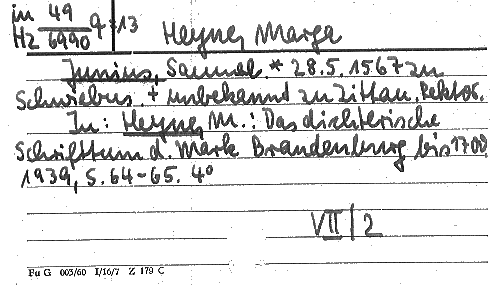 in 49 q 13
Hz 6990
Heyne, Marga
Junius, Samuel. * 28.5.1567 zu
Schwiebus. + unbekannt zu Zittau. Rektor.
In: Heyne, M.: Das dichterische
Schrifttum d. Mark Brandenburg bis 1700
1939, S. 64-65. 4°
VII/2
Fu G 003/60 I/16/7 Z 179 C